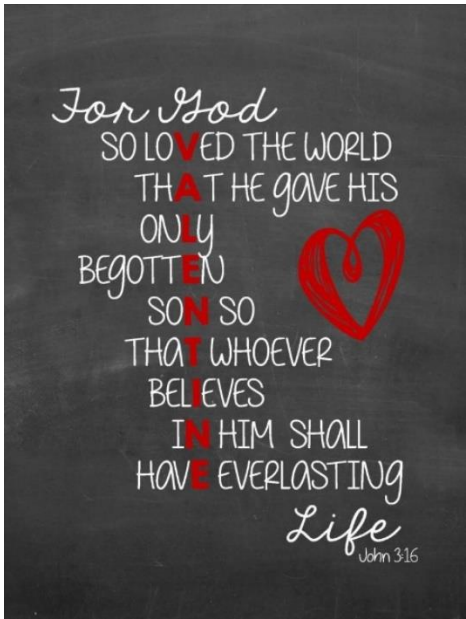 For God
SO LOVED THE WORLD
THAT HE gAVE HIS
ONLY
BEGOTTEN
SON SO
THAT WHOEVER
BELIEVES
IN HIM SHALL
HAVE EVERLASTING
Life
John 3:16